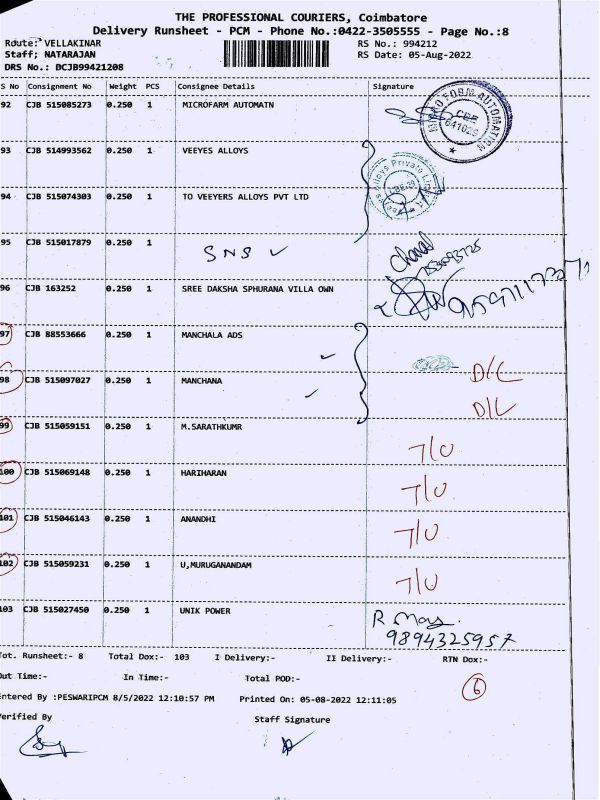 THE PROFESSIONAL COURIERS, Coimbatore
Delivery Runsheet - PCM - Phone No.:0422-3505555 - Page No.:8
Route: VELLAKINAR RS No.: 994212
Staff; NATARAJAN RS Date: 05-Aug-2022
DRS No.: DCJB99421208
S No Consignment No Weight PCS Consignee Details Signature
92 CJB 515085273 0.250 1 MICROFARM AUTOMATN
MICRO FORM AUTOMATION
CBE
93 CJB 514993562 0.250 1 VEEYES ALLOYS
Veeyes Alloys Private Lim
94 CJB 515074303 0.250 1 TO VEEYERS ALLOYS PVT LTD
95 CJB 515017879 0.250 1
SNS
96 CJB 163252 0.250 1 SREE DAKSHA SPHURANA VILLA OWN
97 CJB 88553666 0.250 1 MANCHALA ADS
D/L
98 CJB 515097027 0.250 1 MANCHANA
D/L
99 CJB 515059151 0.250 1 M.SARATHKUMR
7/U
100 CJB 515069148 0.250 1 HARIHARAN
7/U
101 CJB 515046143 0.250 1 ANANDHI
7/U
102 CJB 515059231 0.250 1 U,MURUGANANDAM
7/U
103 CJB 515027450 0.250 1 UNIK POWER
9894325957
Tot. Runsheet:- 8 Total Dox:- 103 I Delivery:- II Delivery:- RTN Dox:-
Out Time:- In Time:- Total POD:-
6
Entered By :PESWARIPCM 8/5/2022 12:10:57 PM Printed On: 05-08-2022 12:11:05
Verified By Staff Signature